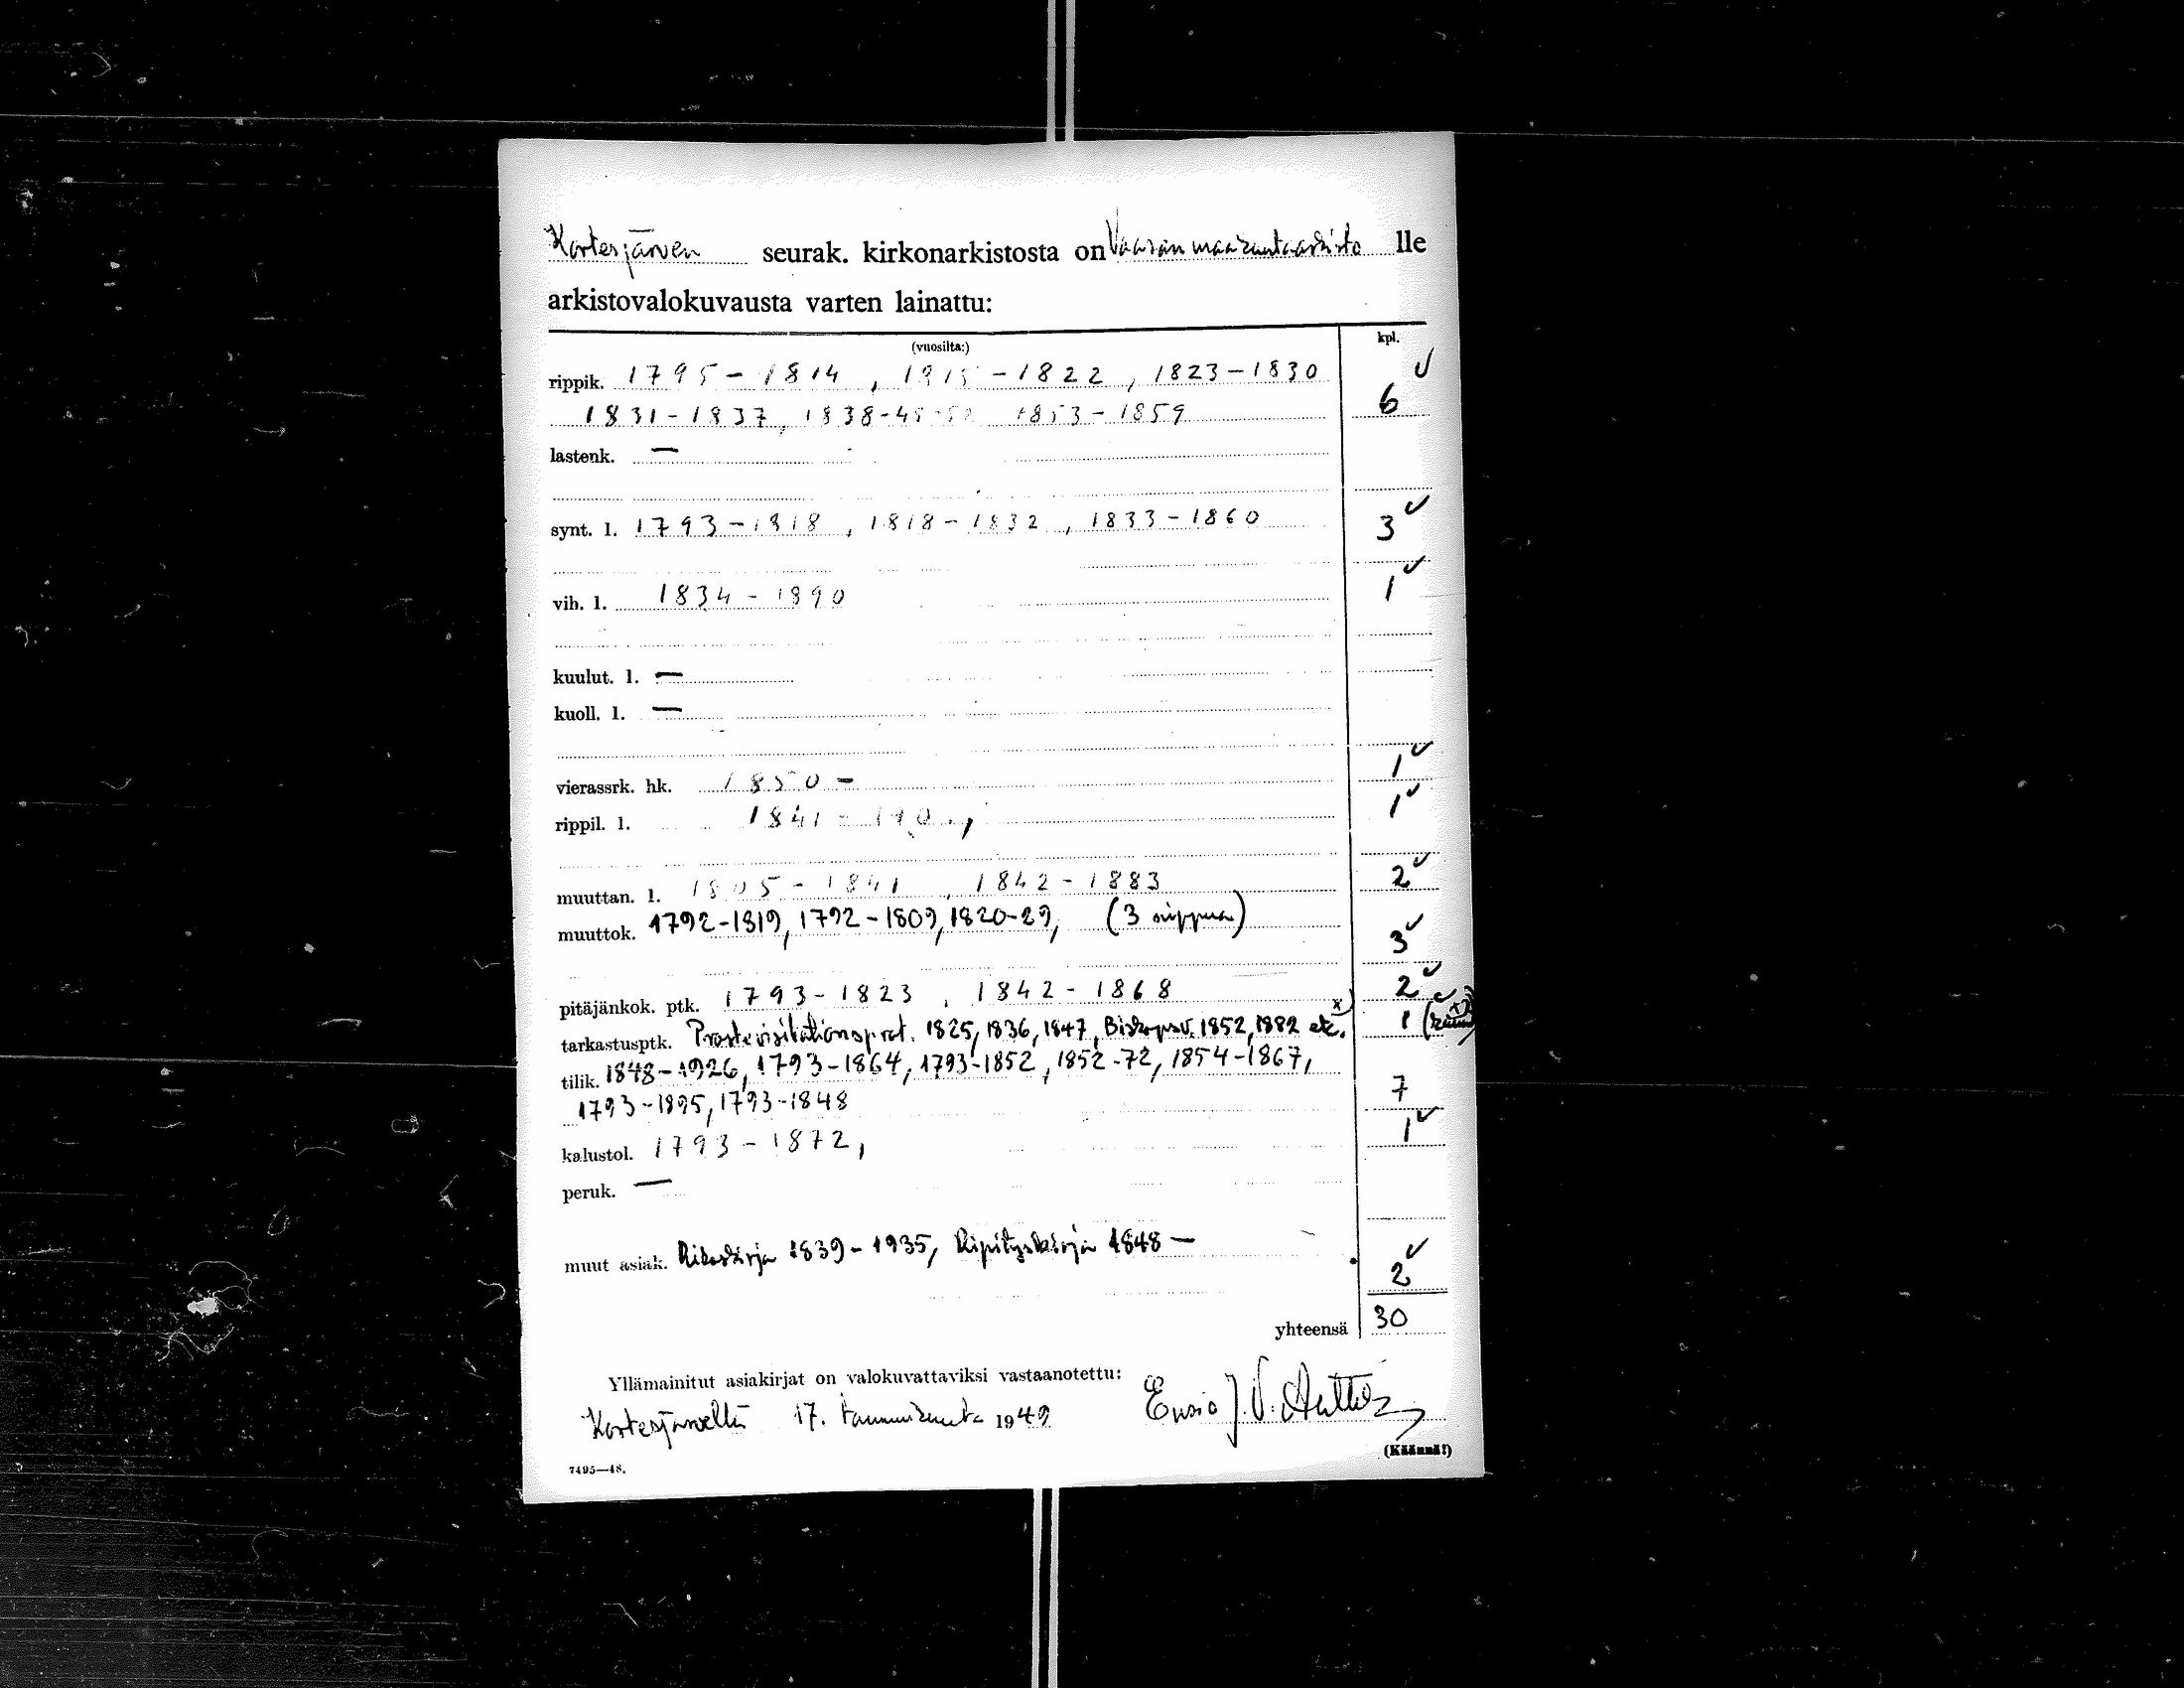 Kortesjärven seurak. kirkonarkistosta on Vaasan maakunta-arkisto lle
arkistovalokuvausta varten lainattu:
(vuosilta:) kpl.
rippik. 1795-1814, 1815-1822, 1823-1830 ✓
1831-1837, 1838-45-52 1853-1859 6
lastenk. —
synt. l. 1793-1818, 1818-1832, 1833-1860 3 ✓
vih. l. 1834-1890 1 ✓
kuulut. l. —
kuoll. l. —
vierassrk. hk. 1850 - 1 ✓
rippil. l. 1841 - 1 ✓
muuttan. l. 1805-1841, 1842-1883 2 ✓
muuttok. 1792-1819, 1792-1809, 1820-29, (3 nippua) 3 ✓
pitäjänkok. ptk. 1793-1823, 1842-1868 2 ✓
tarkastusptk. Prostevisitationsprot. 1825, 1836, 1847, Biskopsv. 1852, 1882 etc. x) 1 ✓
tilik. 1848-1926, 1793-1864, 1793-1852, 1852-72, 1854-1867,
1793-1895, 1793-1848 7
kalustol. 1793-1872, 1 ✓
peruk. —
muut asiak. Rikoskirja 1839-1935, Ripityskirja 1848 — 2 ✓
yhteensä 30
Yllämainitut asiakirjat on valokuvattaviksi vastaanotettu:
Kortesjärvellä 17. tammikuuta 1949 Ensio J. V.
(Käännä!)
7495—48.